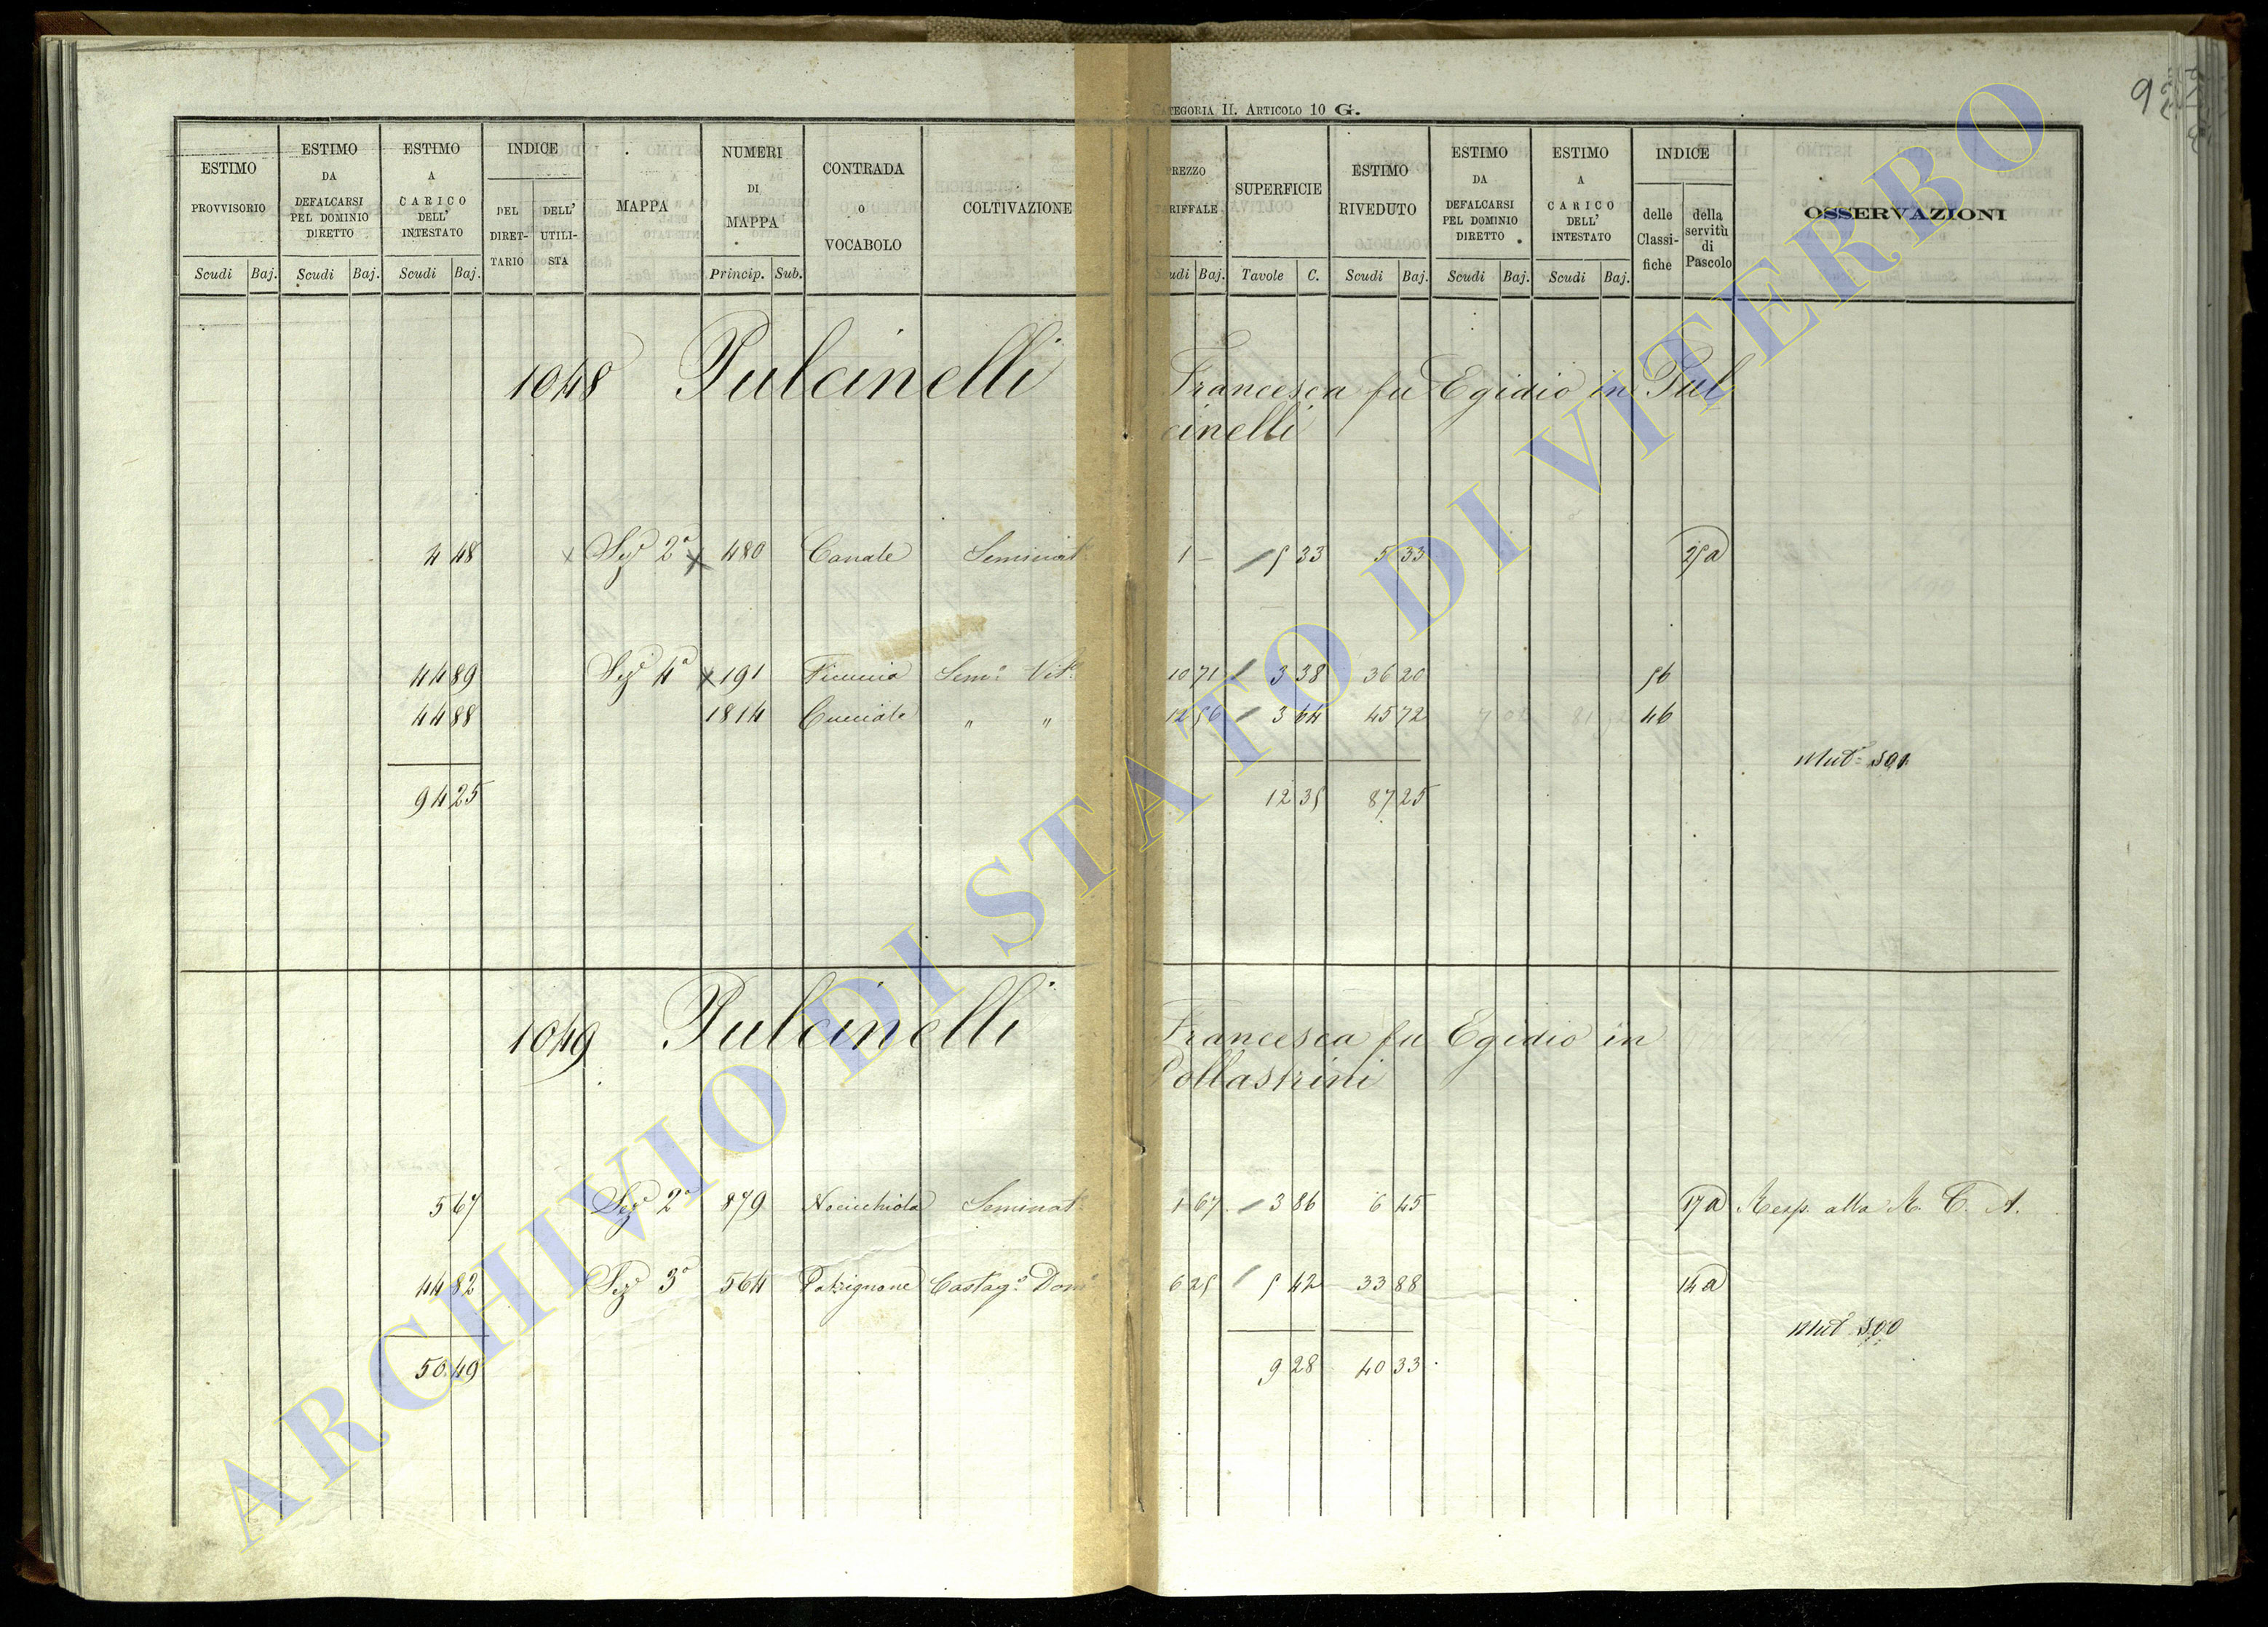 CATEGORIA II. ARTICOLO 10 G.
ESTIMO PROVVISORIO Scudi Baj.
ESTIMO DA DEFALCARSI PEL DOMINIO DIRETTO Scudi Baj.
ESTIMO A CARICO DELL' INTESTATO Scudi Baj.
INDICE DEL DIRET-TARIO DELL' UTILI-STA
MAPPA
NUMERI DI MAPPA Princip. Sub.
CONTRADA O VOCABOLO
COLTIVAZIONE
PREZZO TARIFFALE Scudi Baj.
SUPERFICIE Tavole C.
ESTIMO RIVEDUTO Scudi Baj.
ESTIMO DA DEFALCARSI PEL DOMINIO DIRETTO Scudi Baj.
ESTIMO A CARICO DELL' INTESTATO Scudi Baj.
INDICE delle Classi-fiche della servitù di Pascolo
OSSERVAZIONI
1048 Pulcinelli Francesca fu Egidio in Pul
cinelli
4 48 Sez.e 2a 480 Canale Seminat. 1 – 5 33 5 33 25 a
44 89 Sez.e 4a 191 Sem.o Vit.o 10 71 3 38 36 20 56
44 88 1814 " " 12 56 3 64 45 72 46
Mut. 501
94 25 12 35 87 25
1049 Pulcinelli Francesca fu Egidio in
Pollastrini
5 67 Sez.e 2a 879 Nocicchiola Seminat. 1 67 3 86 6 45 17 a Resp. alla R. C. A.
44 82 Sez.e 3a 564 Patrignone Castag.o Dom.o 6 25 5 42 33 88 14 a
Mut. 500
50.49 9 28 40 33
ARCHIVIO DI STATO DI VITERBO